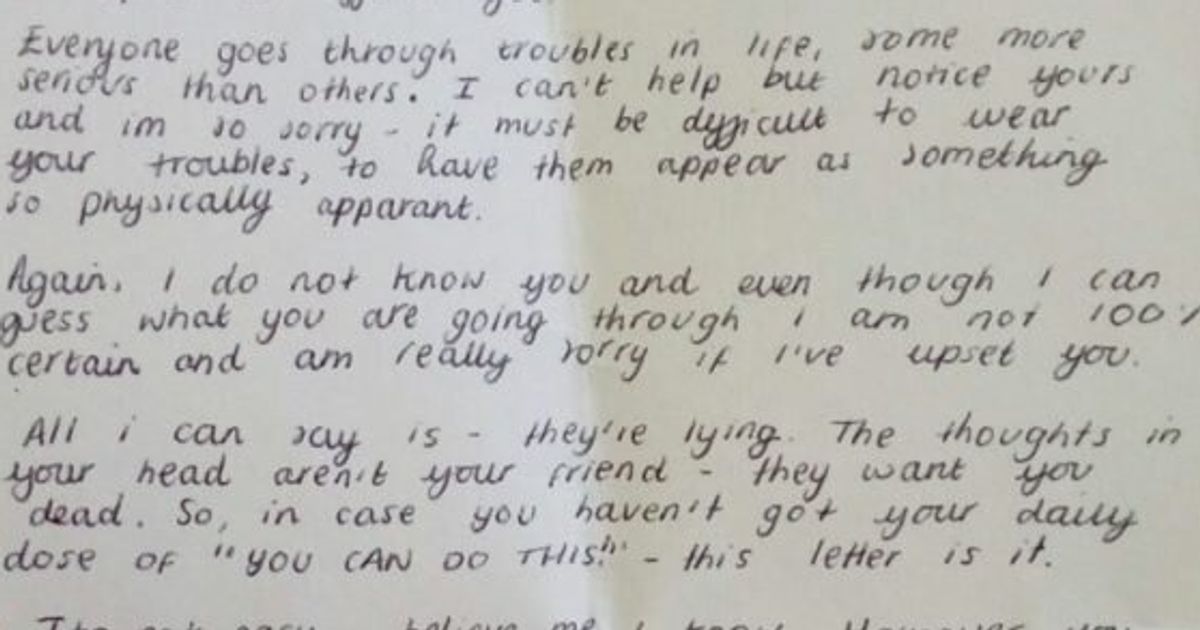 Everyone goes through troubles in life, some more
serious than others. I can't help but notice yours
and im so sorry - it must be difficult to wear
your troubles, to have them appear as something
so physically apparant.
Again, I do not know you and even though I can
guess what you are going through i am not 100%
certain and am really sorry if I've upset you.
All i can say is - they're lying. The thoughts in
your head aren't your friend - they want you
dead. So, in case you haven't got your daily
dose of "YOU CAN DO THIS!" - this letter is it.